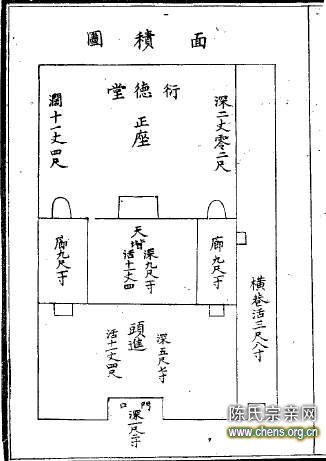 面積圖
衍德堂
正座
深二丈零二尺
濶十一丈四尺
廊九尺一寸
天堦
深九尺一寸
活十一丈四
廊九尺一寸
橫巷活三尺八寸
頭進
深五尺七寸
活十一丈四尺
門口
深一尺二寸
陈氏宗亲网
www.chens.org.cn